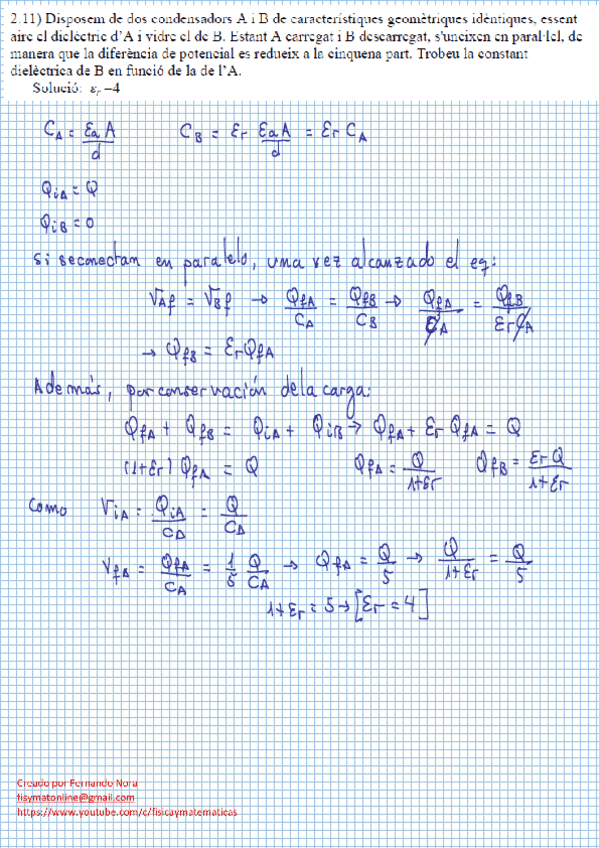 2.11) Disposem de dos condensadors A i B de característiques geomètriques idèntiques, essent
aire el dielèctric d'A i vidre el de B. Estant A carregat i B descarregat, s'uneixen en paral·lel, de
manera que la diferència de potencial es redueix a la cinquena part. Trobeu la constant
dielèctrica de B en funció de la de l'A.
Solució: εr=4
C_A = εa A / d    C_B = εr εa A / d = εr C_A
Q_iA = Q
Q_iB = 0
Si se conectan en paralelo, una vez alcanzado el eq:
V_Af = V_Bf → Q_fA / C_A = Q_fB / C_B → Q_fA / C_A = Q_fB / εr C_A
→ Q_fB = εr Q_fA
Además, por conservación de la carga:
Q_fA + Q_fB = Q_iA + Q_iB → Q_fA + εr Q_fA = Q
(1+εr) Q_fA = Q    Q_fA = Q / 1+εr    Q_fB = εr Q / 1+εr
Como V_iA = Q_iA / C_A = Q / C_A
V_fA = Q_fA / C_A = 1/5 Q / C_A → Q_fA = Q / 5 → Q / 1+εr = Q / 5
1+εr = 5 → [εr = 4]
Creado por Fernando Nora
fisymatonline@gmail.com
https://www.youtube.com/c/fisicaymatematicas